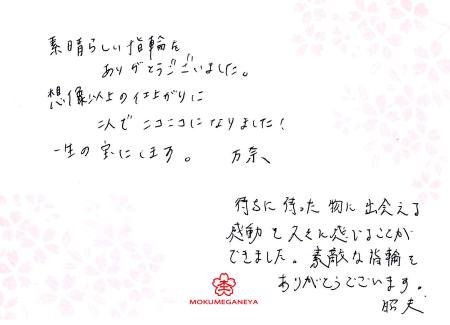 素晴らしい指輪を
ありがとうございました。
想像以上の仕上がりに
二人でニコニコになりました!
一生の宝にします。 万奈
待ちに待った物に出会える
感動を 久々に感じることが
できました。素敵な指輪を
ありがとうございます。
昭夫
MOKUMEGANEYA